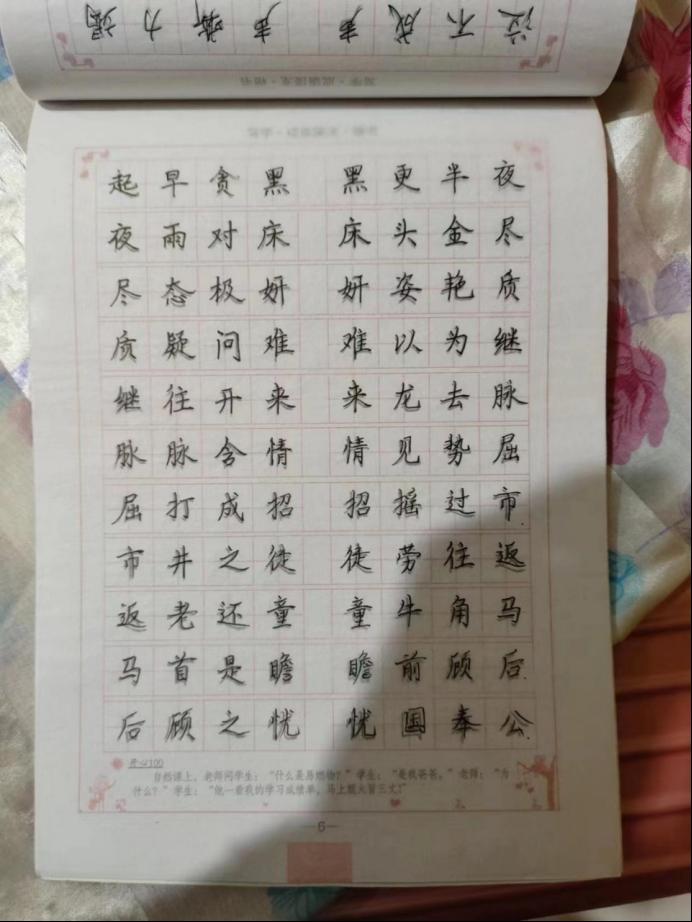 泣不成声 声嘶力竭
起早贪黑 黑更半夜
夜雨对床 床头金尽
尽态极妍 妍姿艳质
质疑问难 难以为继
继往开来 来龙去脉
脉脉含情 情见势屈
屈打成招 招摇过市
市井之徒 徒劳往返
返老还童 童牛角马
马首是瞻 瞻前顾后
后顾之忧 忧国奉公
开心100
自然课上，老师问学生：“什么是易燃物？”学生：“是我爸爸。”老师：“为
什么？”学生：“他一看我的学习成绩单，马上就火冒三丈！”
—6—